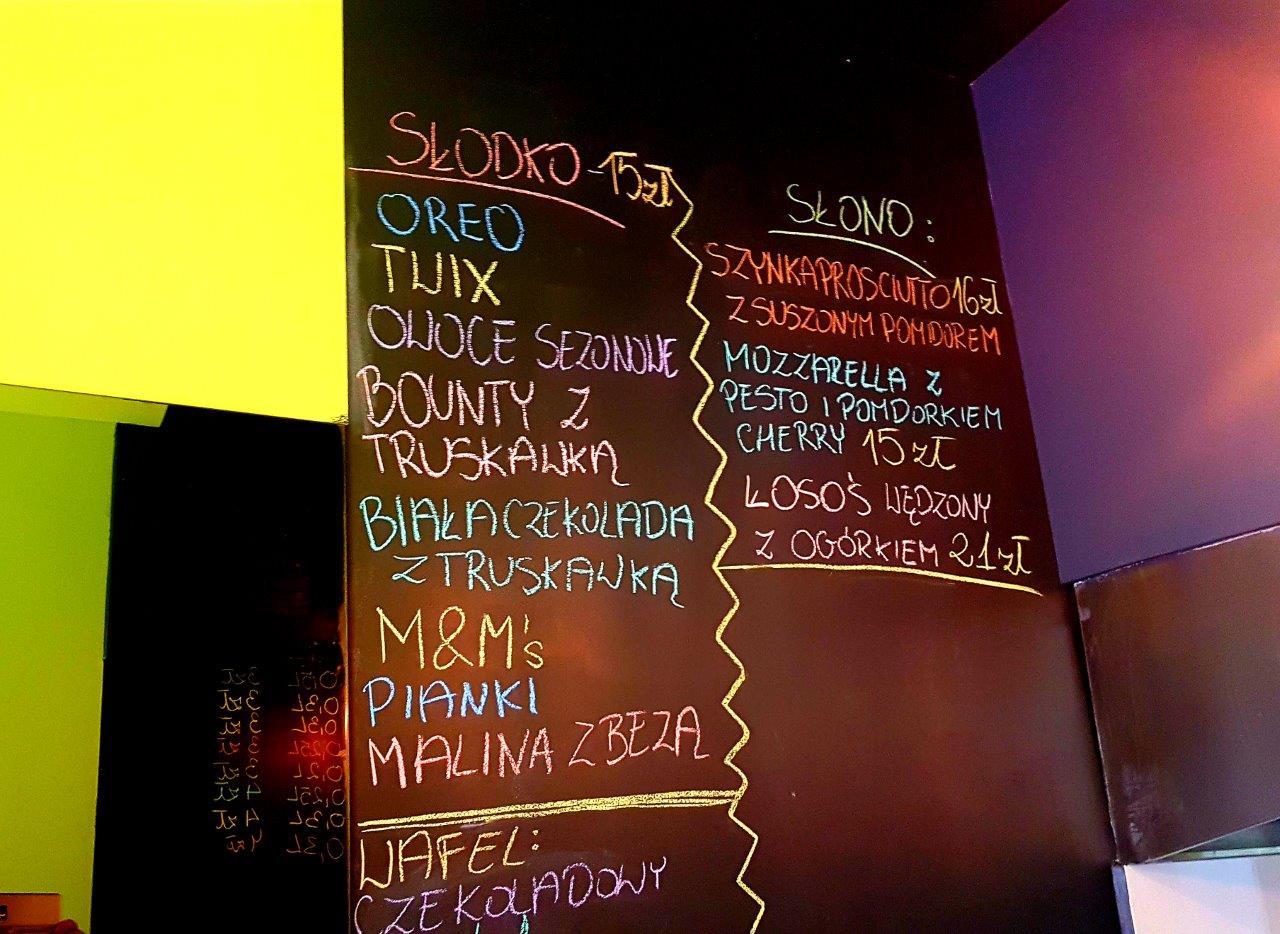 SŁODKO - 15zł
OREO
TWIX
OWOCE SEZONOWE
BOUNTY Z
TRUSKAWKĄ
BIAŁA CZEKOLADA
Z TRUSKAWKĄ
M&M's
PIANKI
MALINA Z BEZĄ
WAFEL:
CZEKOLADOWY
SŁONO:
SZYNKA PROSCIUTTO 16zł
Z SUSZONYM POMDOREM
MOZZARELLA Z
PESTO I POMDORKIEM
CHERRY 15 zł
ŁOSOŚ WĘDZONY
Z OGÓRKIEM 21zł